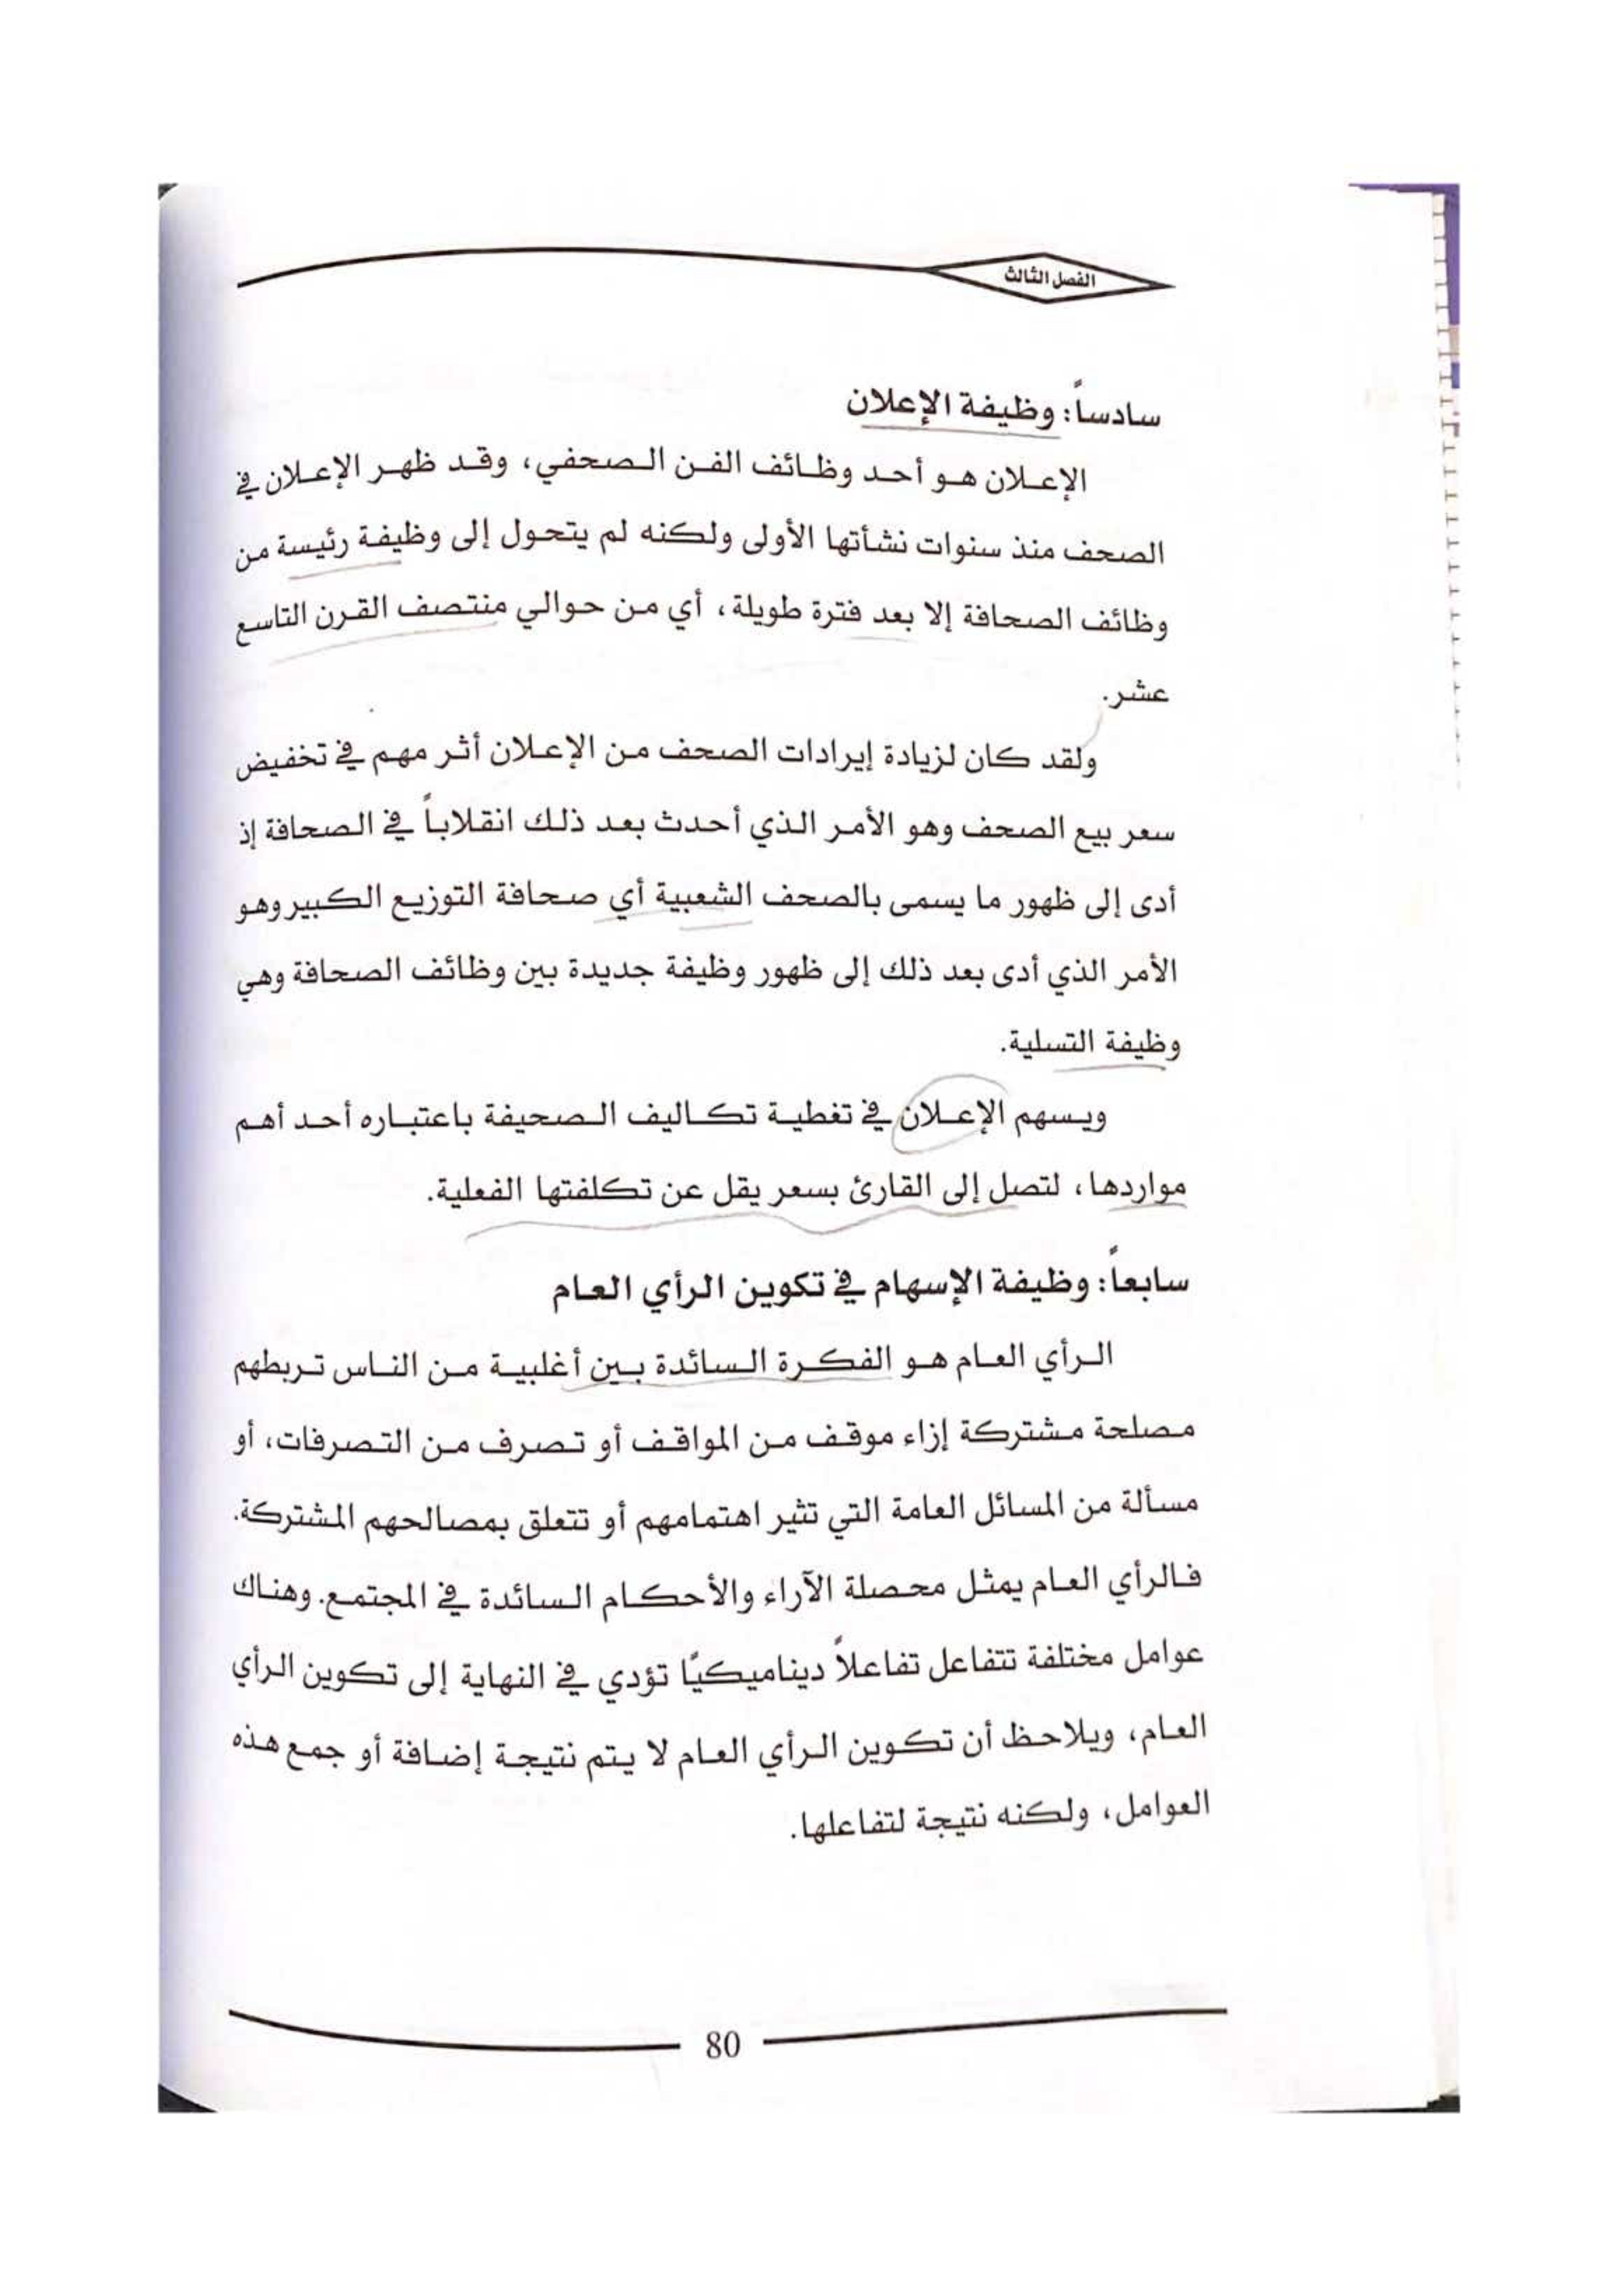 الفصل الثالث
سادساً: وظيفة الإعلان
الإعلان هو أحد وظائف الفن الصحفي، وقد ظهر الإعلان في
الصحف منذ سنوات نشأتها الأولى ولكنه لم يتحول إلى وظيفة رئيسة من
وظائف الصحافة إلا بعد فترة طويلة، أي من حوالي منتصف القرن التاسع
عشر.
ولقد كان لزيادة إيرادات الصحف من الإعلان أثر مهم في تخفيض
سعر بيع الصحف وهو الأمر الذي أحدث بعد ذلك انقلاباً في الصحافة إذ
أدى إلى ظهور ما يسمى بالصحف الشعبية أي صحافة التوزيع الكبير وهو
الأمر الذي أدى بعد ذلك إلى ظهور وظيفة جديدة بين وظائف الصحافة وهي
وظيفة التسلية.
ويسهم الإعلان في تغطية تكاليف الصحيفة باعتباره أحد أهم
مواردها، لتصل إلى القارئ بسعر يقل عن تكلفتها الفعلية.
سابعاً: وظيفة الإسهام في تكوين الرأي العام
الرأي العام هو الفكرة السائدة بين أغلبية من الناس تربطهم
مصلحة مشتركة إزاء موقف من المواقف أو تصرف من التصرفات، أو
مسألة من المسائل العامة التي تثير اهتمامهم أو تتعلق بمصالحهم المشتركة.
فالرأي العام يمثل محصلة الآراء والأحكام السائدة في المجتمع. وهناك
عوامل مختلفة تتفاعل تفاعلاً ديناميكيًا تؤدي في النهاية إلى تكوين الرأي
العام، ويلاحظ أن تكوين الرأي العام لا يتم نتيجة إضافة أو جمع هذه
العوامل، ولكنه نتيجة لتفاعلها.
80